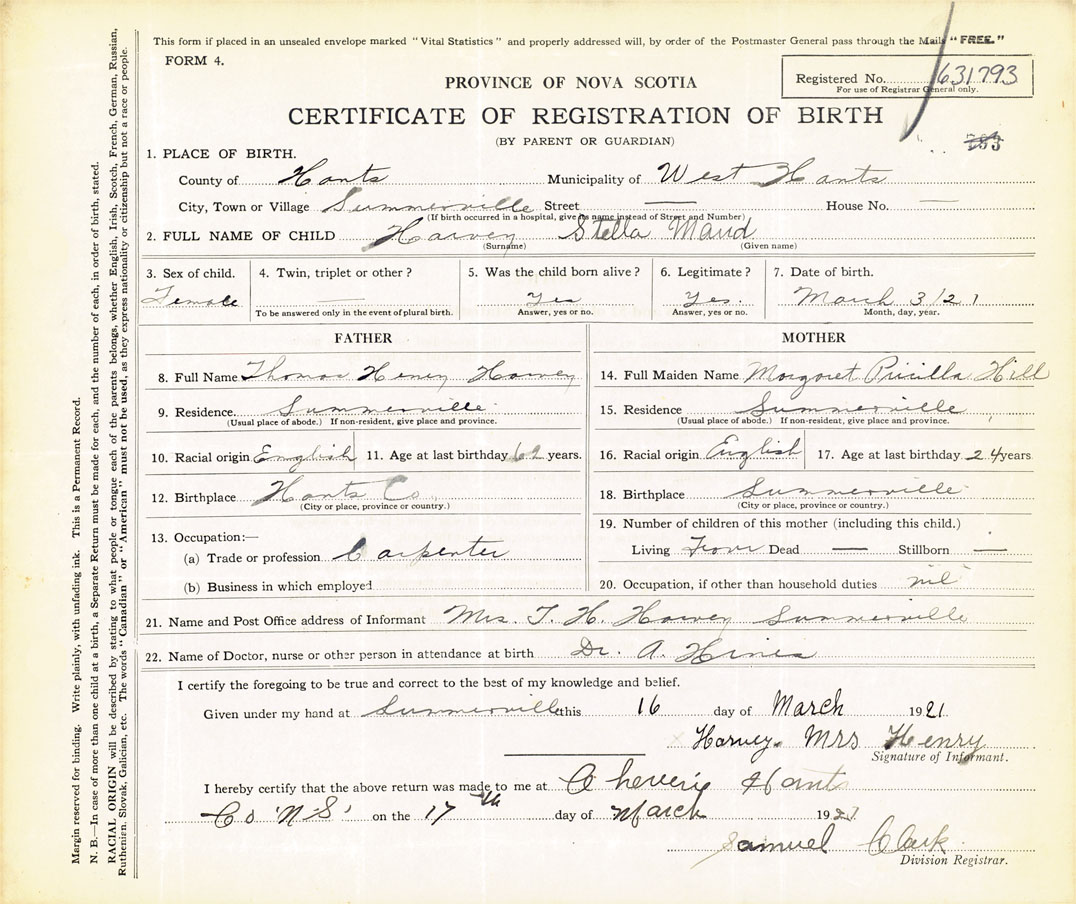 This form if placed in an unsealed envelope marked "Vital Statistics" and properly addressed will, by order of the Postmaster General pass through the Mails "FREE."
FORM 4.
Registered No. 631793
For use of Registrar General only.
PROVINCE OF NOVA SCOTIA
CERTIFICATE OF REGISTRATION OF BIRTH
(BY PARENT OR GUARDIAN)
1. PLACE OF BIRTH.
County of Hants Municipality of West Hants
City, Town or Village Summerville Street — House No. —
(If birth occurred in a hospital, give its name instead of Street and Number)
2. FULL NAME OF CHILD Harvey Stella Maud
(Surname) (Given name)
3. Sex of child. 4. Twin, triplet or other? 5. Was the child born alive? 6. Legitimate? 7. Date of birth.
Female — Yes Yes. March 3/21
To be answered only in the event of plural birth. Answer, yes or no. Answer, yes or no. Month, day, year.
FATHER MOTHER
8. Full Name Thomas Henry Harvey 14. Full Maiden Name Margaret Pricilla Hill
9. Residence. Summerville 15. Residence Summerville
(Usual place of abode.) If non-resident, give place and province. (Usual place of abode.) If non-resident, give place and province.
10. Racial origin English 11. Age at last birthday years. 16. Racial origin English 17. Age at last birthday 24 years
12. Birthplace Hants Co. 18. Birthplace Summerville
(City or place, province or country.) (City or place, province or country.)
13. Occupation:— 19. Number of children of this mother (including this child.)
(a) Trade or profession Carpenter Living Dead — Stillborn —
(b) Business in which employed 20. Occupation, if other than household duties nil
21. Name and Post Office address of Informant Mrs. T. H. Harvey Summerville
22. Name of Doctor, nurse or other person in attendance at birth Dr. A. Hines
I certify the foregoing to be true and correct to the best of my knowledge and belief.
Given under my hand at Summerville this 16 day of March 1921.
Harvey. Mrs Henry
Signature of Informant.
I hereby certify that the above return was made to me at Cheverie Hants
Co "N-S" on the 17th day of March 192
Samuel Clark
Division Registrar.
Margin reserved for binding. Write plainly, with unfading ink. This is a Permanent Record.
N. B.—In case of more than one child at a birth, a Separate Return must be made for each, and the number of each, in order of birth, stated.
RACIAL ORIGIN will be described by stating to what people or tongue each of the parents belongs, whether English, Irish, Scotch, French, German, Russian,
Ruthenian, Slovak, Galician, etc. The words "Canadian" or "American" must not be used, as they express nationality or citizenship but not a race or people.